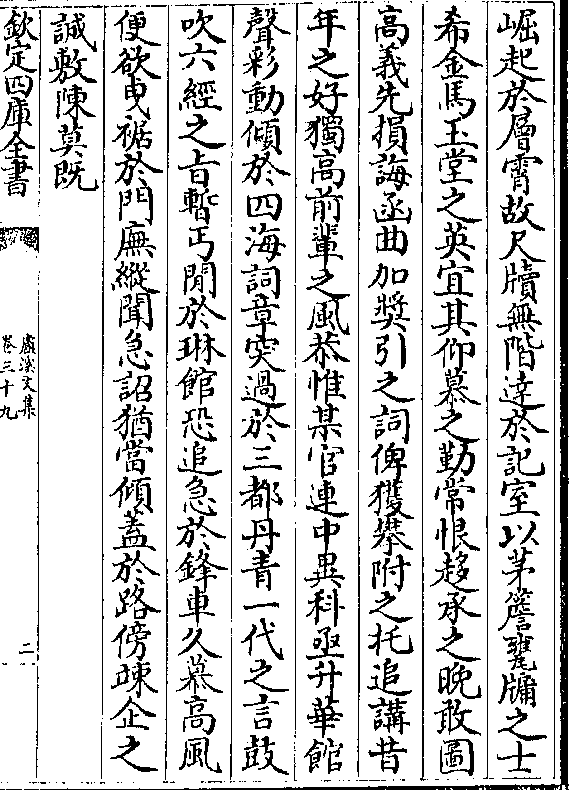 崛起於層霄故尺牘無階達於記室以茅簷甕牖之士
希金馬玉堂之英宜其仰慕之勤常恨趍承之晚敢圖
高義先損誨函曲加奬引之詞俾獲攀附之托追講昔
年之好獨高前輩之風恭惟某官連中異科亟升華館
聲彩動傾於四海詞章突過於三都丹青一代之言鼓
吹六經之旨暫丐閒於琳館恐追急於鋒車久慕高風
便欲曳裾於門廡縱聞急詔猶當傾蓋於路傍竦企之
誠敷陳莫既
欽定四庫全書
盧溪文集
卷三十九
二